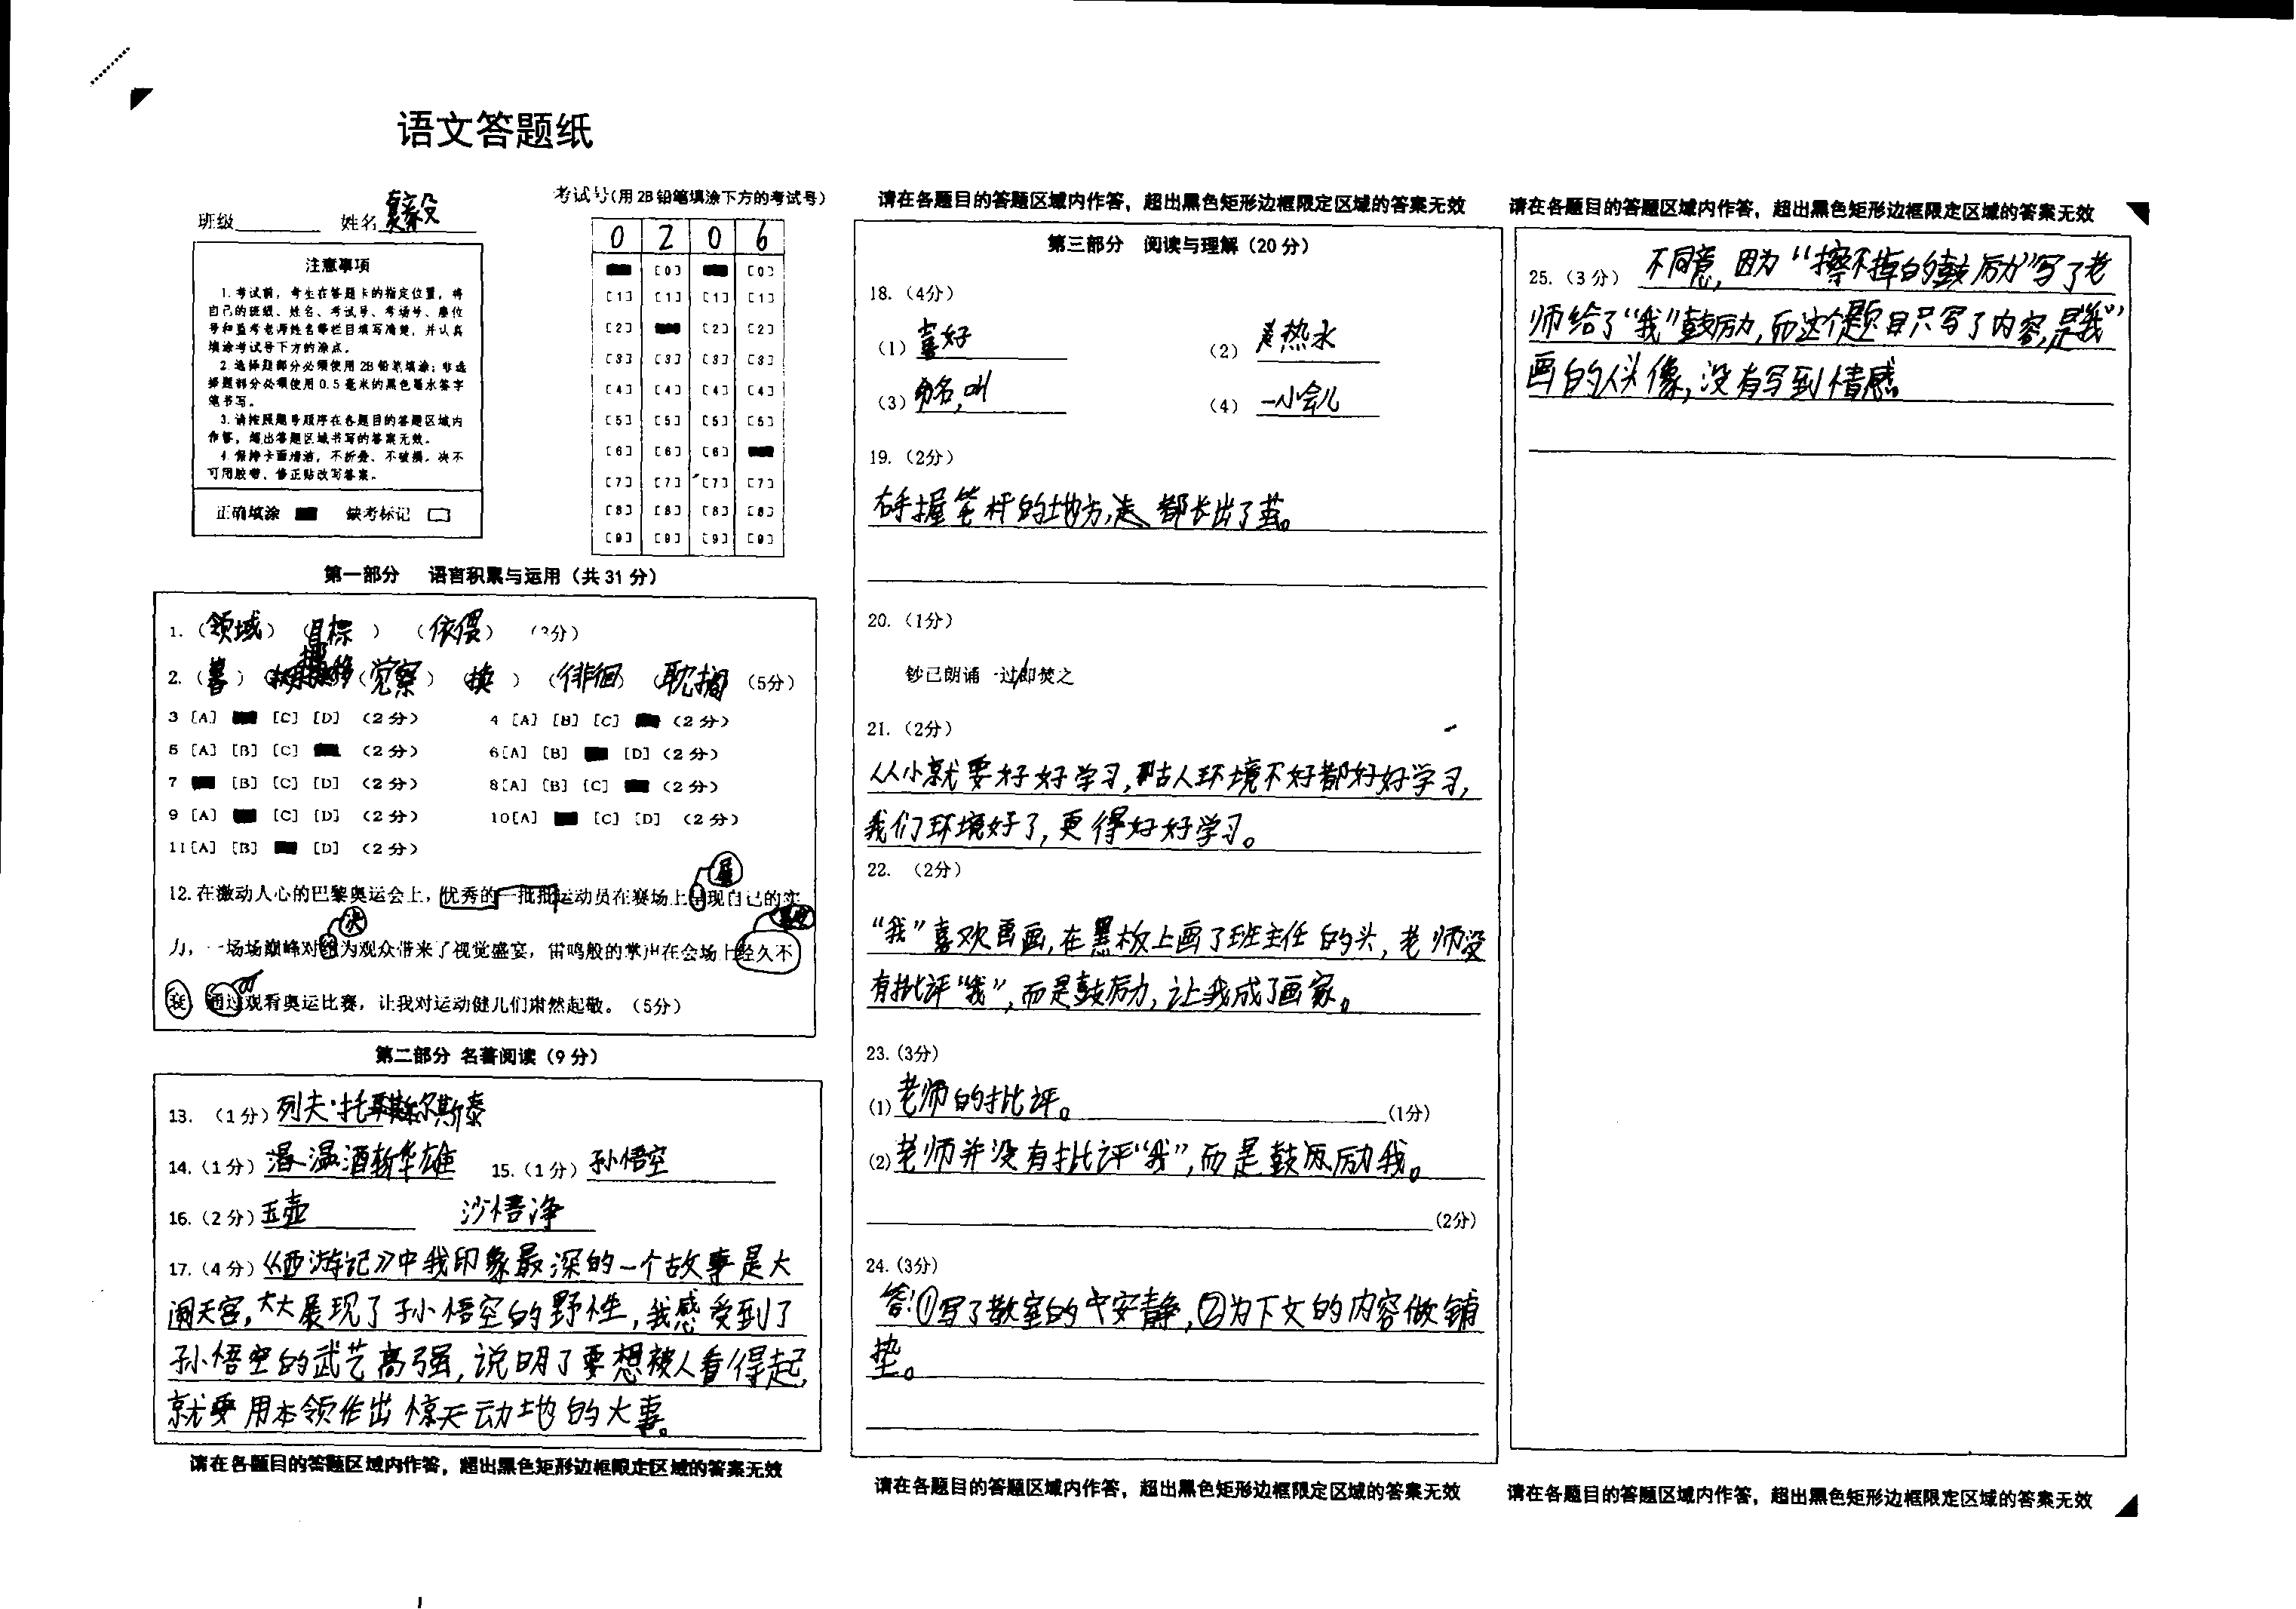 语文答题纸
班级 姓名
考试号(用2B铅笔填涂下方的考试号)
0 2 0 6
[0] [0]
[1] [1] [1] [1]
[2] [2] [2]
[3] [3] [3] [3]
[4] [4] [4] [4]
[5] [5] [5] [5]
[6] [6] [6]
[7] [7] [7] [7]
[8] [8] [8] [8]
[9] [9] [9] [9]
注意事项
1.考试前，考生在答题卡的指定位置，将
自己的班级、姓名、考试号、考场号、座位
号和监考老师姓名等栏目填写清楚，并认真
填涂考试号下方的涂点。
2.选择题部分必须使用2B铅笔填涂；非选
择题部分必须使用0.5毫米的黑色墨水签字
笔书写。
3.请按照题号顺序在各题目的答题区域内
作答，超出答题区域书写的答案无效。
4.保持卡面清洁，不折叠、不破损。决不
可用胶带、修正贴改写答案。
正确填涂 缺考标记
第一部分 语言积累与运用（共31分）
1.（领域）（目标）（依偎）（3分）
2.（暮）（挪移）（觉察）（换）（徘徊）（耽搁）（5分）
3 [A] [C] [D] （2分） 4 [A] [B] [C] （2分）
5 [A] [B] [C] （2分） 6[A] [B] [D]（2分）
7 [B] [C] [D] （2分） 8[A] [B] [C] （2分）
9 [A] [C] [D] （2分） 10[A] [C] [D] （2分）
11[A] [B] [D] （2分）
展
12.在激动人心的巴黎奥运会上，优秀的一批批运动员在赛场上呈现自己的实
决
力，一场场巅峰对绝为观众带来了视觉盛宴，雷鸣般的掌声在会场上经久不
衰，通过观看奥运比赛，让我对运动健儿们肃然起敬。（5分）
第二部分 名著阅读（9分）
13.（1分）列夫·托尔斯泰
14.（1分）温酒斩华雄 15.（1分）孙悟空
16.（2分）玉壶 沙悟净
17.（4分）《西游记》中我印象最深的一个故事是大
闹天宫，大大展现了孙悟空的野性，我感受到了
孙悟空的武艺高强，说明了要想被人看得起，
就要用本领作出惊天动地的大事。
请在各题目的答题区域内作答，超出黑色矩形边框限定区域的答案无效
请在各题目的答题区域内作答，超出黑色矩形边框限定区域的答案无效
第三部分 阅读与理解（20分）
18.（4分）
（1）喜好 （2）热水
（3）命名，叫 （4）一小会儿
19.（2分）
右手握笔杆的地方，都长出了茧。
20.（1分）
钞已朗诵一过/即焚之
21.（2分）
从小就要好好学习，古人环境不好都好好学习，
我们环境好了，更得好好学习。
22.（2分）
“我”喜欢画画，在黑板上画了班主任的头，老师没
有批评“我”，而是鼓励，让我成了画家。
23.(3分)
(1)老师的批评。(1分)
(2)老师并没有批评“我”，而是鼓励我。
(2分)
24.(3分)
答：①写了教室的安静，②为下文的内容做铺
垫。
请在各题目的答题区域内作答，超出黑色矩形边框限定区域的答案无效
请在各题目的答题区域内作答，超出黑色矩形边框限定区域的答案无效
25.（3分）不同意，因为“擦不掉的鼓励”写了老
师给了“我”鼓励，而这个题目只写了内容，是“我”
画的人头像，没有写到情感。
请在各题目的答题区域内作答，超出黑色矩形边框限定区域的答案无效